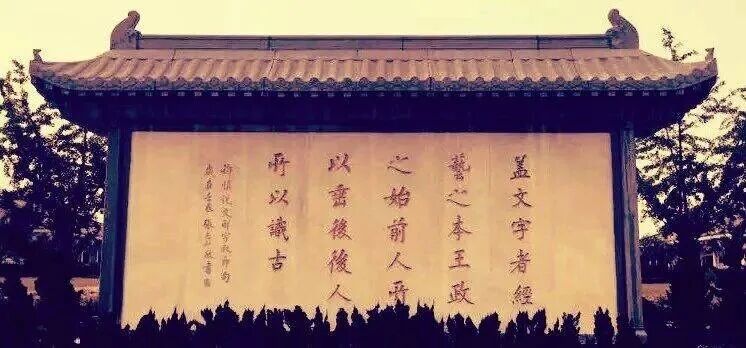 盖文字者經
藝之本王政
之始前人所
以垂後後人
所以識古
許慎說文解字敘節句
歲在壬辰